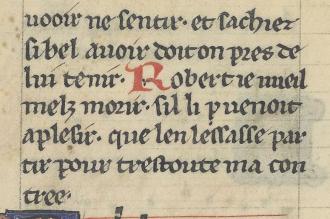 uooir ne sentir · et sachiez
si bel auoir doit on pres de
lui tenir · Robert ie uueil
melz morir · sil li p uenoit
a plesir · que len lessasse par
tir pour trestoute ma con
tree ·